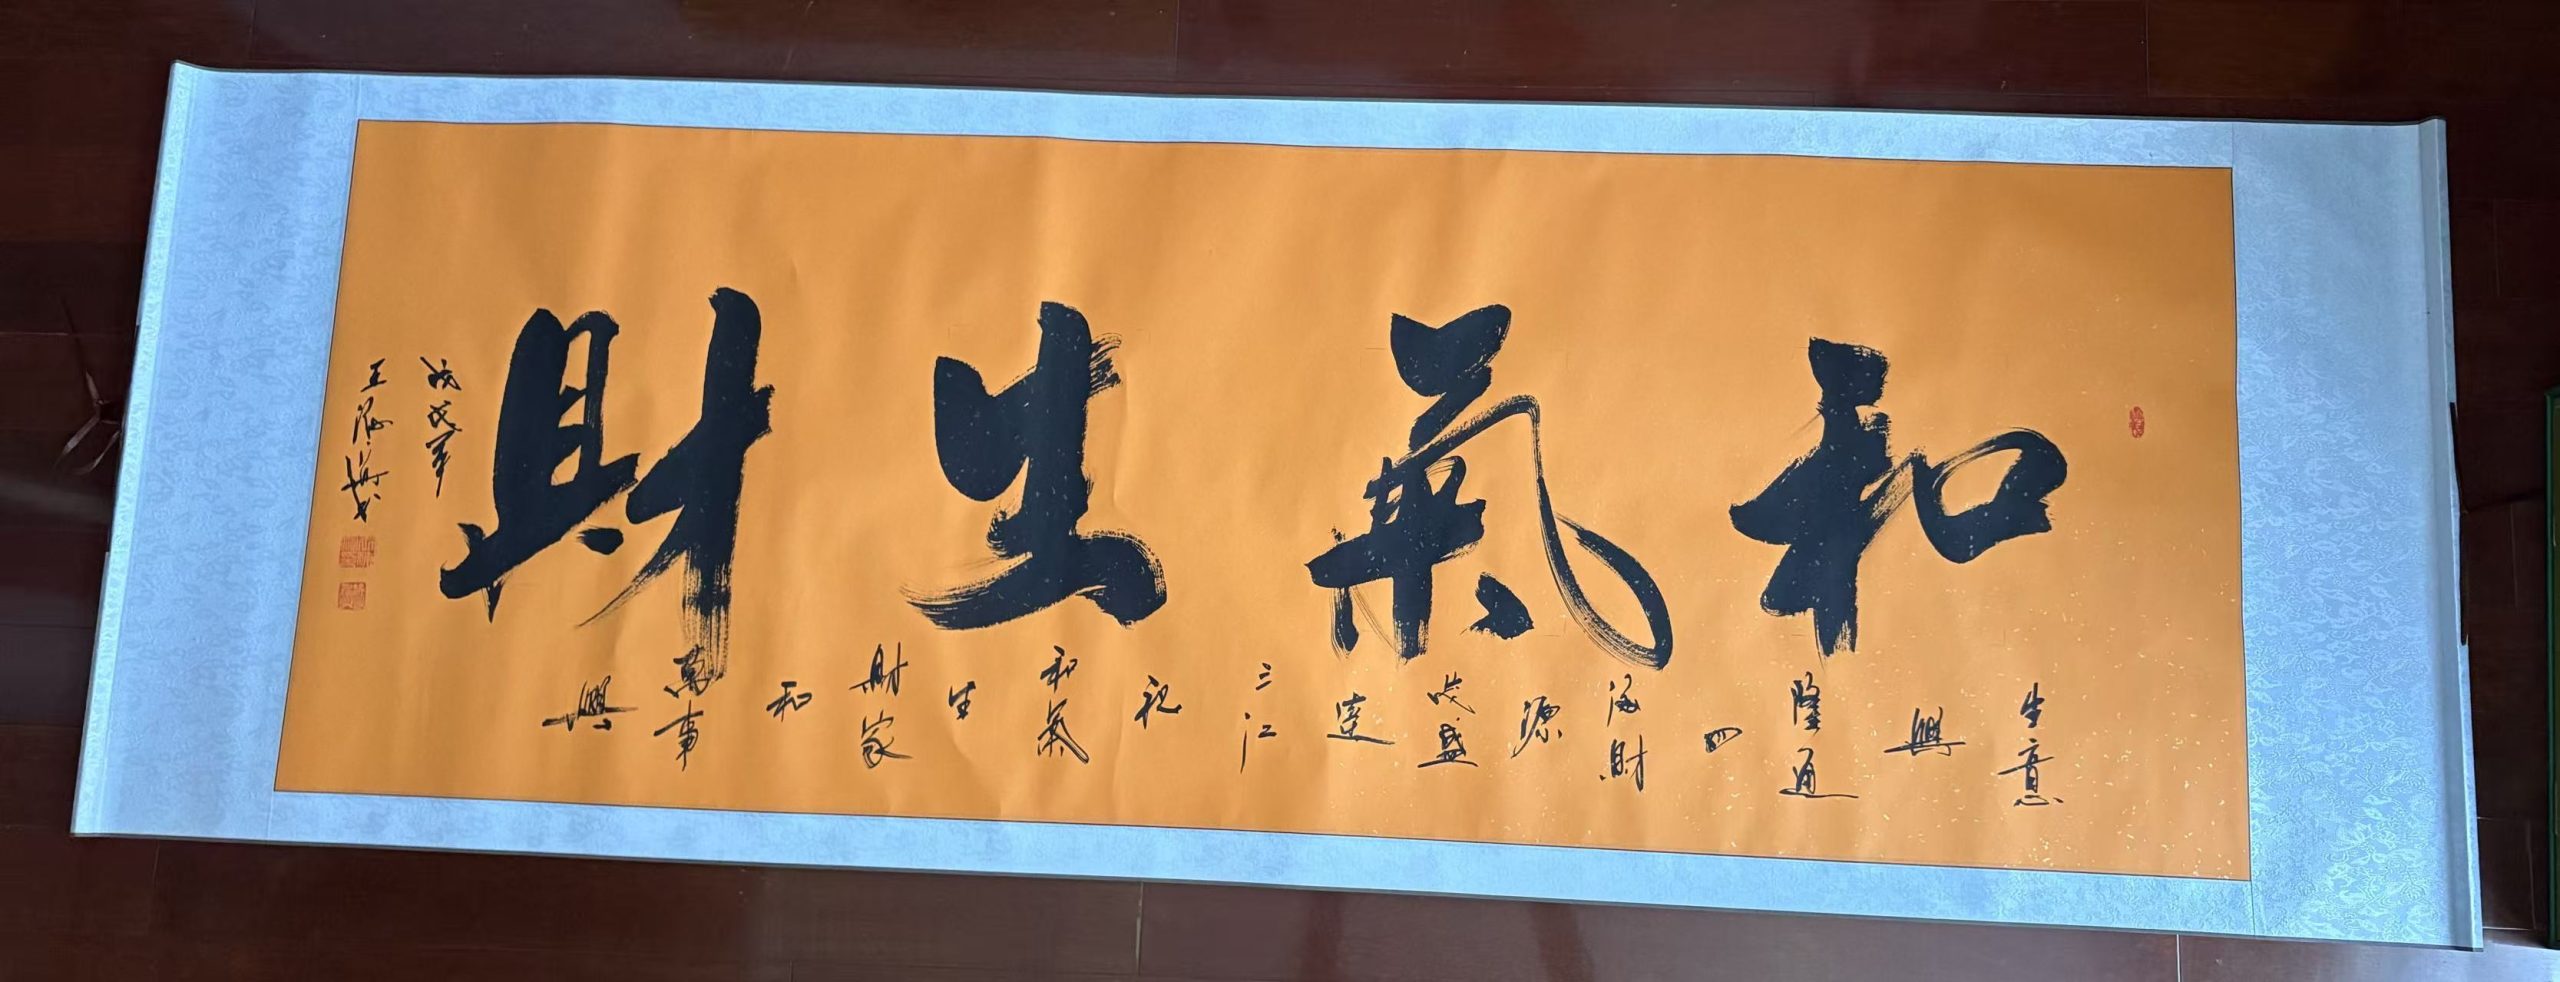 和氣生財
生意
興
隆通
四
海財
源
茂盛
達
三江
祝
和氣
生
財家
和
萬事
興
戊戌年
王海